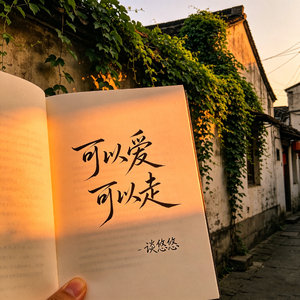 可以爱
可以走
-谈悠悠